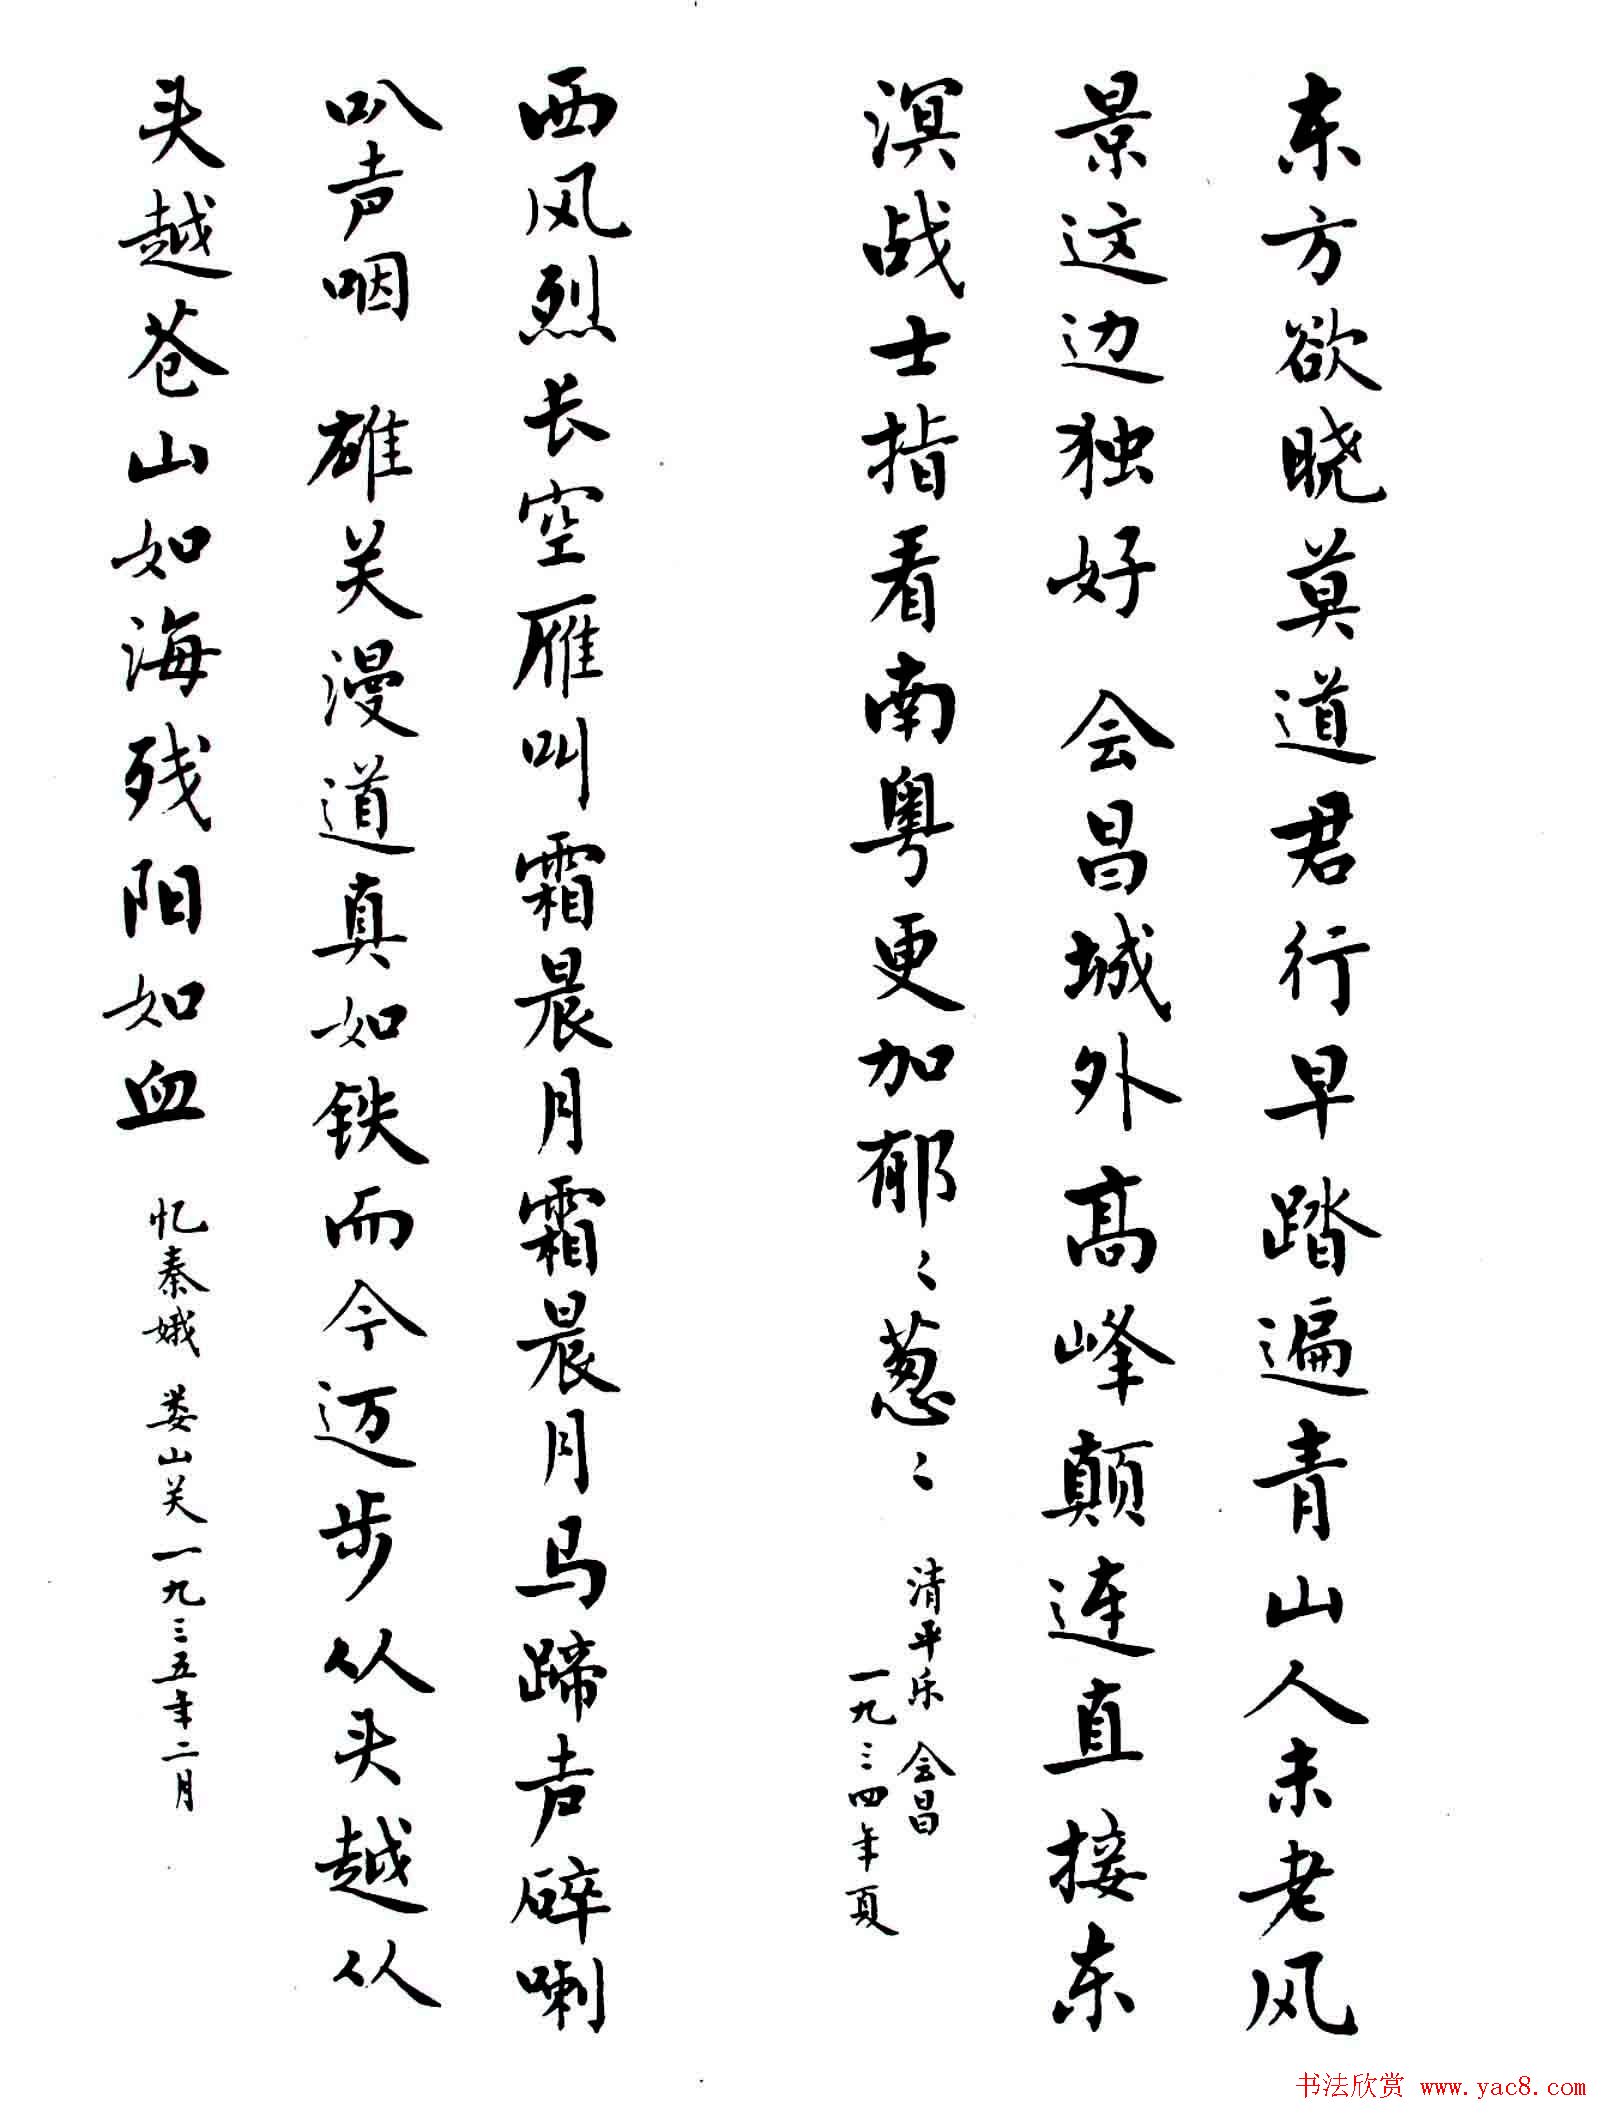 东方欲晓莫道君行早踏遍青山人未老风
景这边独好 会昌城外高峰颠连直接东
溟战士指看南粤更加郁〻葱〻
清平乐 会昌
一九三四年夏
西风烈长空雁叫霜晨月霜晨月马蹄声碎喇
叭声咽 雄关漫道真如铁而今迈步从头越从
头越苍山如海残阳如血 忆秦娥 娄山关一九三五年二月
书法欣赏 www.yac8.com